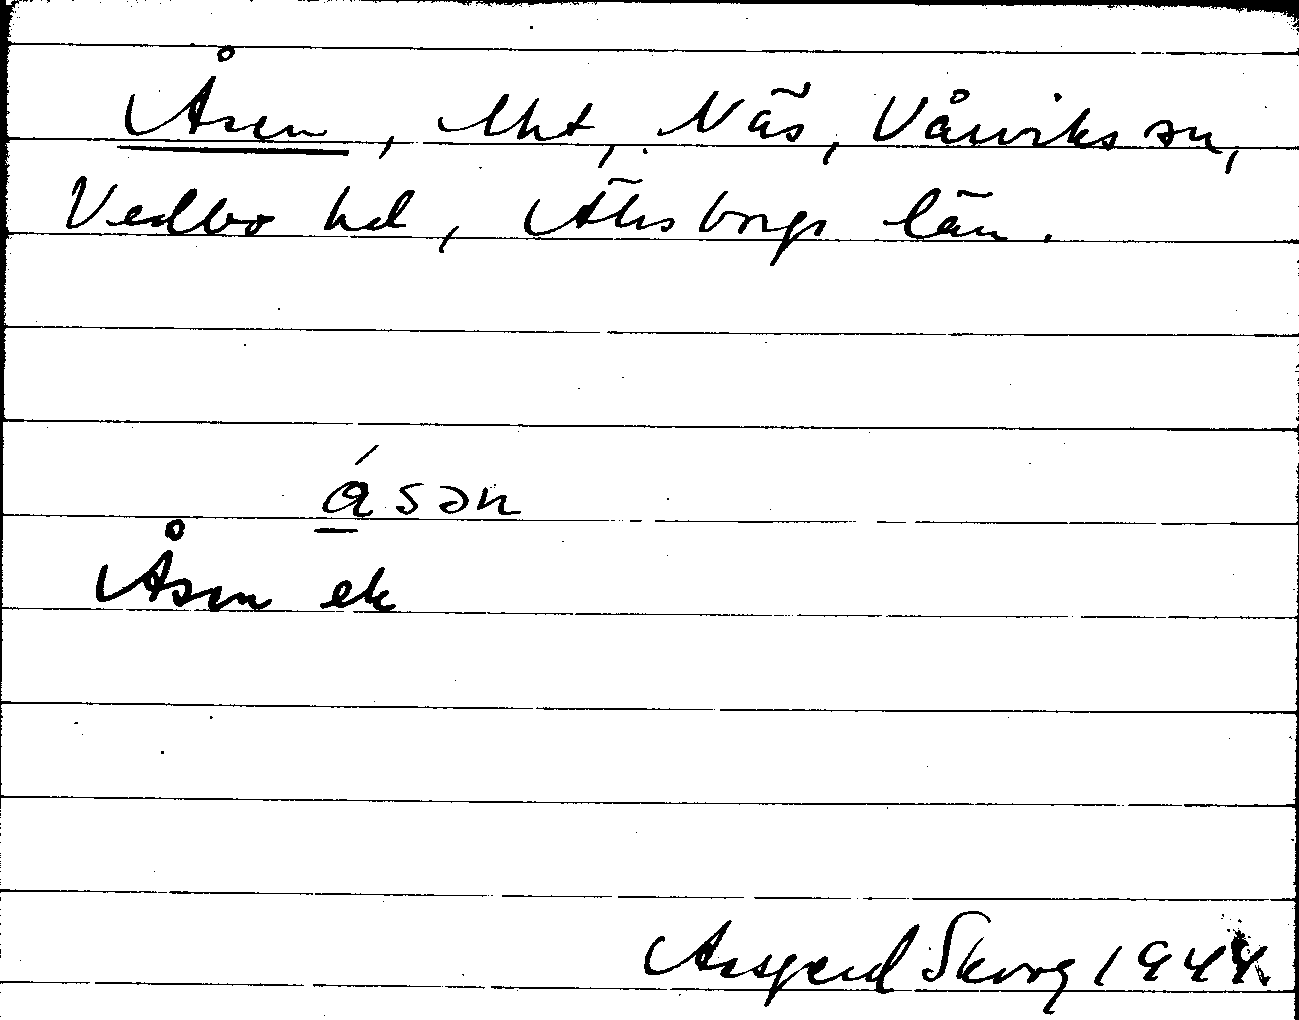 Åsen, lht, Näs, Vårviks sn,
Vedbo hd, Älvsborgs län.
ásən
Åsen ek
Asgerd Skorg 1944